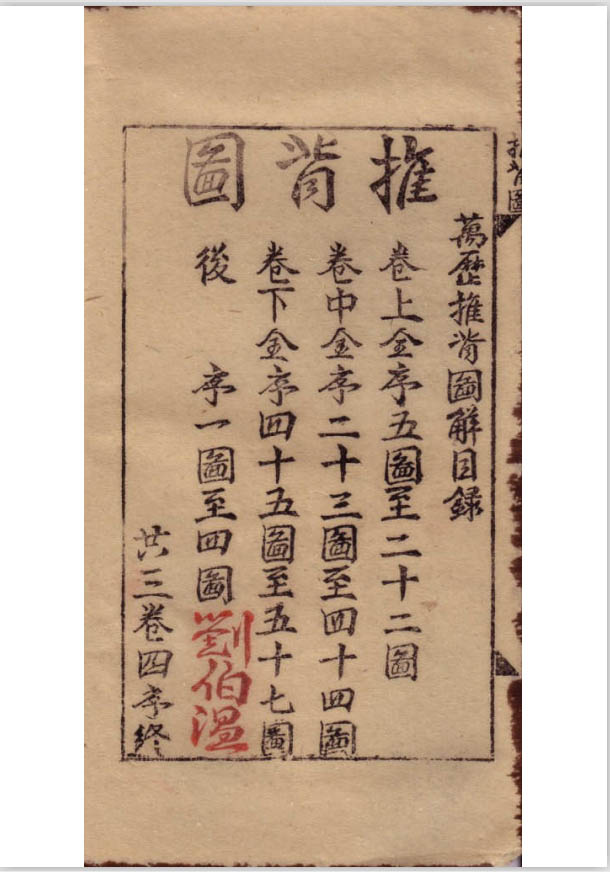 推背圖
萬歷推背圖解目録
卷上金序五圖至二十二圖
卷中金序二十三圖至四十四圖
卷下金序四十五圖至五十七圖
後 序一圖至四圖
劉伯溫
共三卷四序終
推背圖